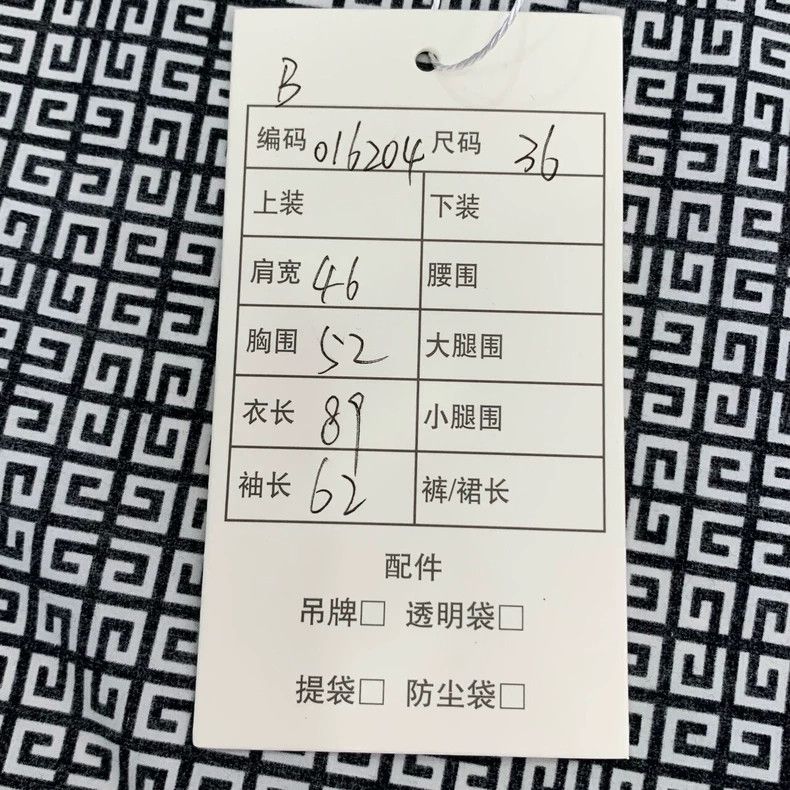 B
编码 016204 尺码 36
上装 下装
肩宽 46 腰围
胸围 52 大腿围
衣长 89 小腿围
袖长 62 裤/裙长
配件
吊牌□ 透明袋□
提袋□ 防尘袋□